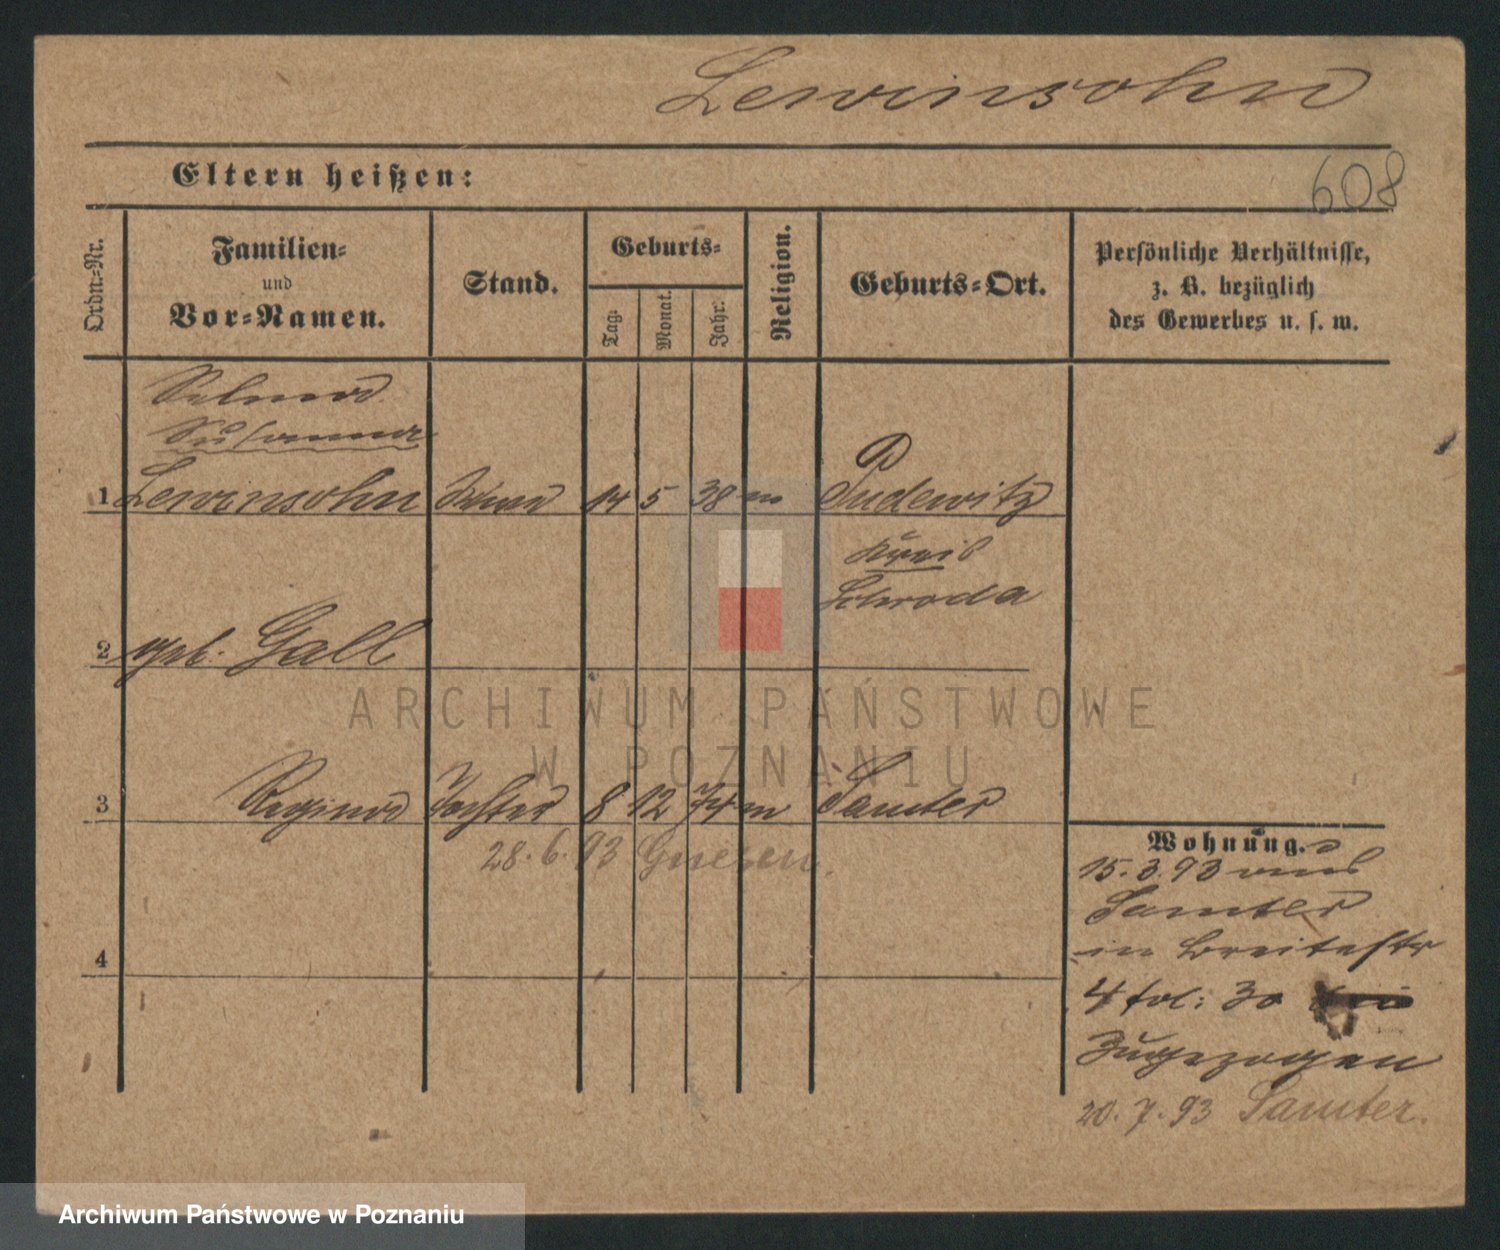 Lewinsohn
608
Eltern heißen:
Ordn.-Nr.
Familien-
und
Vor-Namen.
Stand.
Geburts-
Tag.
Monat.
Jahr.
Religion.
Geburts-Ort.
Persönliche Verhältnisse,
z. B. bezüglich
des Gewerbes u. s. w.
Susanna
1 Lewinsohn 14 5 38 m Pudewitz
Kreis
Schroda
2 geb. Gall
3 Regina Tochter 8 12 74 m Samter
28.6.93 Gnesen.
4
Wohnung.
15.3.93 aus
Samter
in Breitestr
4 fol: 30
Zugezogen
20.7.93 Samter.
ARCHIWUM PAŃSTWOWE
W POZNANIU
Archiwum Państwowe w Poznaniu